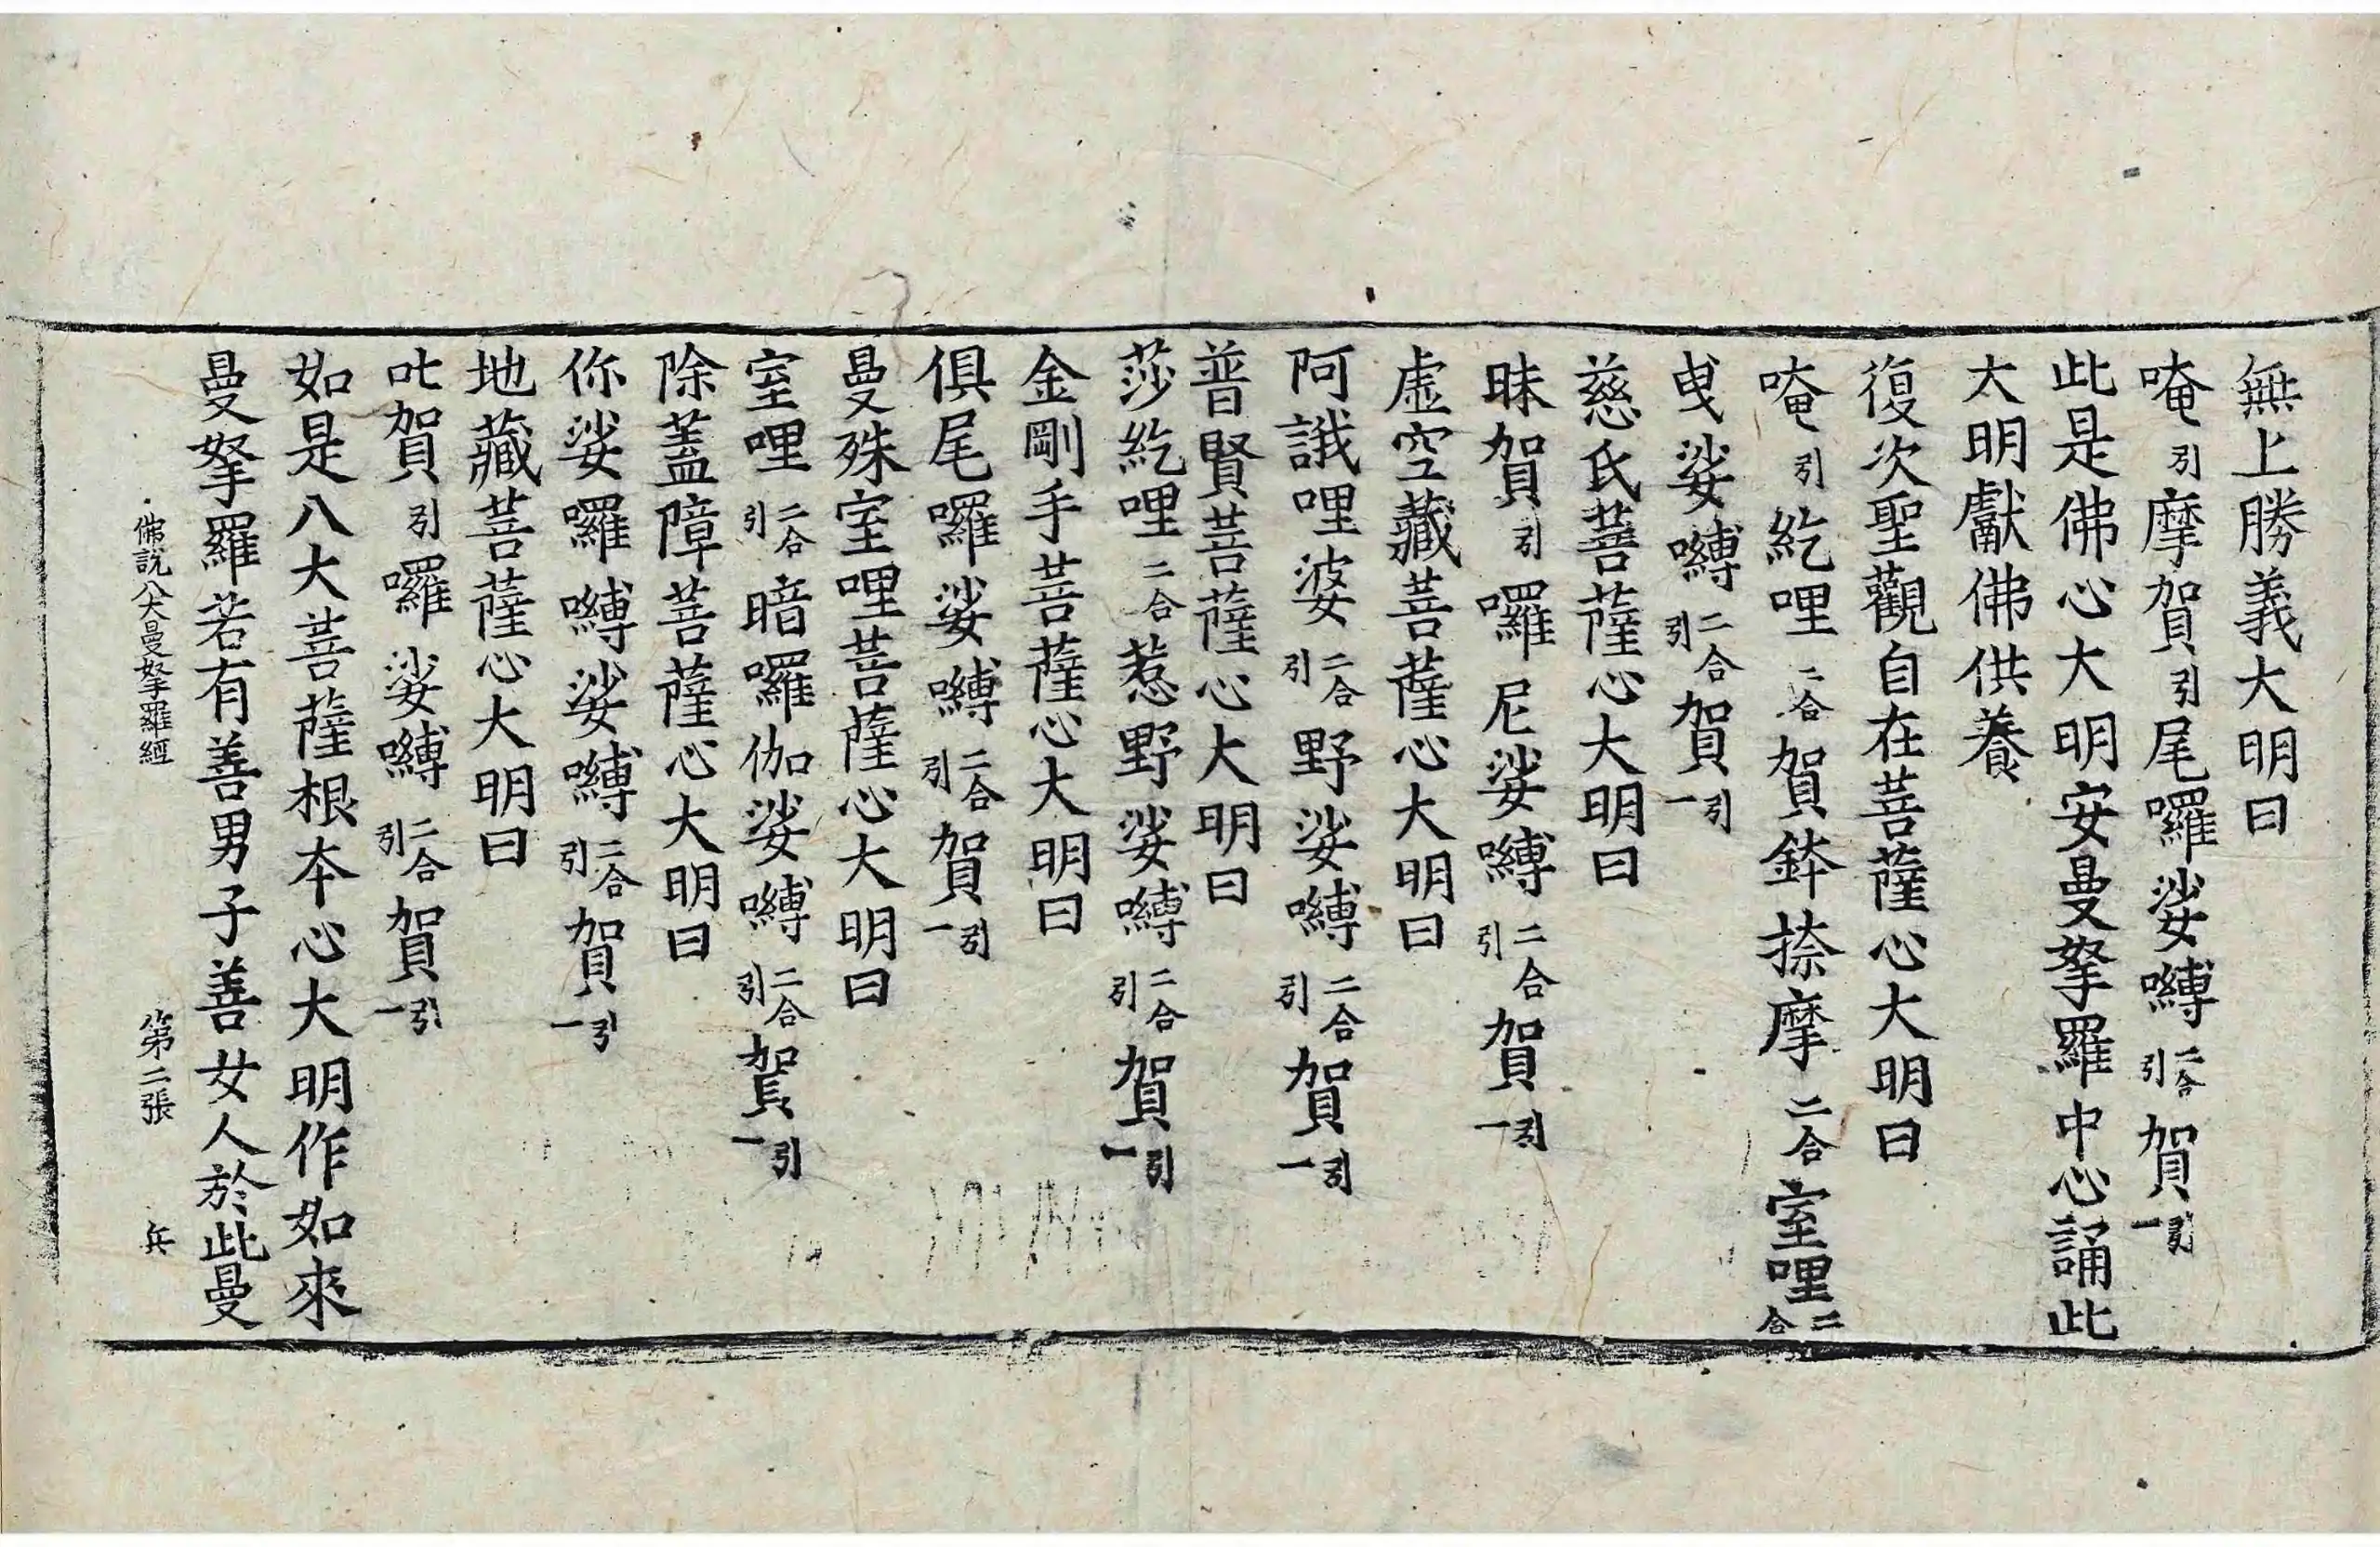 無上勝義大明曰
唵引摩賀引尾囉娑嚩二合引賀引一
此是佛心大明安曼拏羅中心誦此
大明獻佛供養
復次聖觀自在菩薩心大明曰
唵引紇哩二合賀鉢捺摩二合室哩二合
曳娑嚩二合引賀引一
慈氏菩薩心大明曰
昧賀引囉尼娑嚩二合引賀引一
虛空藏菩薩心大明曰
阿誐哩婆二合引野娑嚩二合引賀引一
普賢菩薩心大明曰
莎紇哩二合惹野娑嚩二合引賀引一
金剛手菩薩心大明曰
俱尾囉娑嚩二合引賀引一
曼殊室哩菩薩心大明曰
室哩二合引暗囉伽娑嚩二合引賀引一
除蓋障菩薩心大明曰
你娑囉嚩娑嚩二合引賀引一
地藏菩薩心大明曰
吡賀引囉娑嚩二合引賀引一
如是八大菩薩根本心大明作如來
曼拏羅若有善男子善女人於此曼
佛說八大曼拏羅經 第二張 兵